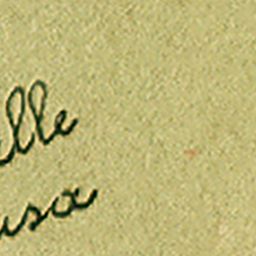 lle
usa